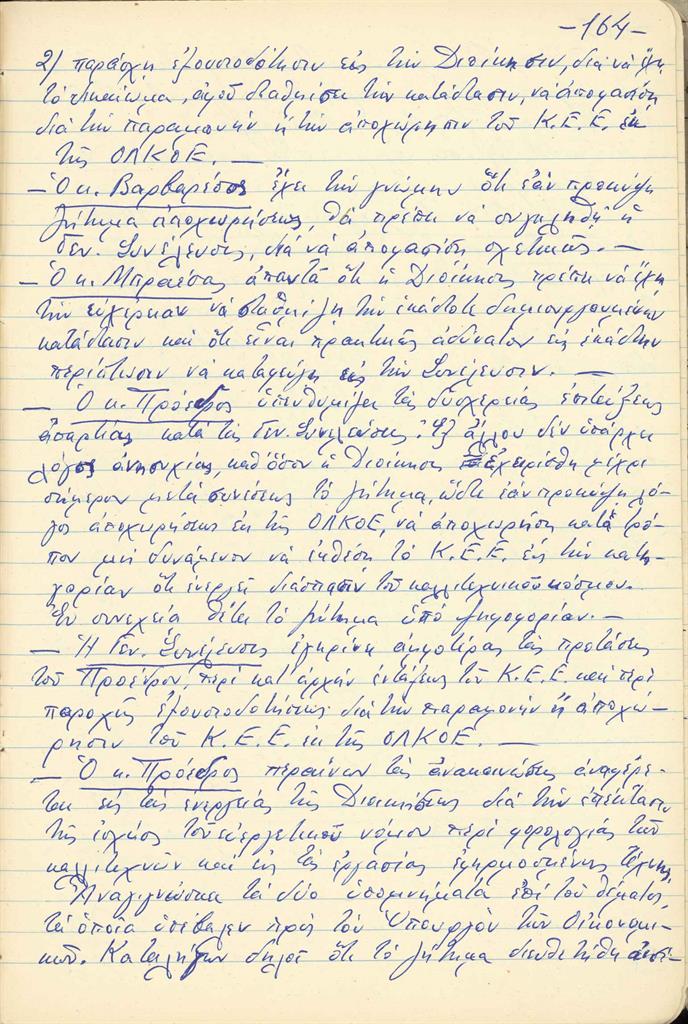 -164-
2) παράσχη ἐξουσιοδότησιν εἰς τὴν Διοίκησιν, διὰ νὰ ἔχη
τὸ δικαίωμα, ἀφοῦ σταθμίση τὴν κατάστασιν, νὰ ἀποφασίση
διὰ τὴν παραμονὴν ἢ τὴν ἀποχώρησιν τοῦ Κ.Ε.Ε. ἐκ
τῆς ΟΛΚΟΕ. —
— Ὁ κ. Βαρβαρέσος ἔχει τὴν γνώμην ὅτι ἐὰν προκύψη
ζήτημα ἀποχωρήσεως, θὰ πρέπει νὰ συγκληθῆ ἡ
Γεν. Συνέλευσις, διὰ νὰ ἀποφασίση σχετικῶς. —
— Ὁ κ. Μπραέσας ἀπαντᾶ ὅτι ἡ Διοίκησις πρέπει νὰ ἔχη
τὴν εὐχέρειαν νὰ σταθμίζη τὴν ἑκάστοτε δημιουργουμένην
κατάστασιν καὶ ὅτι εἶναι πρακτικῶς ἀδύνατον εἰς ἑκάστην
περίπτωσιν νὰ καταφεύγη εἰς τὴν Συνέλευσιν. —
— Ὁ κ. Πρόεδρος ὑπενθυμίζει τὰς δυσχερείας ἐπιτεύξεως
ἀπαρτίας κατὰ τὰς Γεν. Συνελεύσεις. Ἐξ ἄλλου δὲν ὑπάρχει
λόγος ἀνησυχίας, καθ' ὅσον ἡ Διοίκησις ἐχειρίσθη μέχρι
σήμερον μετὰ συνέσεως τὸ ζήτημα, ὥστε ἐὰν προκύψη λό-
γος ἀποχωρήσεως ἐκ τῆς ΟΛΚΟΕ, νὰ ἀποχωρήση κατὰ τρό-
πον μὴ δυνάμενον νὰ ἐκθέση τὸ Κ.Ε.Ε. εἰς τὴν κατη-
γορίαν ὅτι ἐνεργεῖ διάσπασιν τοῦ καλλιτεχνικοῦ κόσμου.
Ἐν συνεχεία θέτει τὸ ζήτημα ὑπὸ ψηφοφορίαν. —
— Ἡ Γεν. Συνέλευσις ἐγκρίνει ἀμφοτέρας τὰς προτάσεις
τοῦ Προέδρου, περὶ κατ' ἀρχὴν ἐντάξεως τοῦ Κ.Ε.Ε. καὶ περὶ
παροχῆς ἐξουσιοδοτήσεως διὰ τὴν παραμονὴν ἢ ἀποχώ-
ρησιν τοῦ Κ.Ε.Ε. ἐκ τῆς ΟΛΚΟΕ. —
— Ὁ κ. Πρόεδρος περαίνων τὰς ἀνακοινώσεις ἀναφέρε-
ται εἰς τὰς ἐνεργείας τῆς Διοικήσεως διὰ τὴν ἐπέκτασιν
τῆς ἰσχύος τοῦ εὐεργετικοῦ νόμου περὶ φορολογίας τῶν
καλλιτεχνῶν καὶ εἰς τὰς ἐργασίας ἐφηρμοσμένης τέχνης.
Ἀναγιγνώσκει τὰ δύο ὑπομνήματα ἐπὶ τοῦ θέματος,
τὰ ὁποῖα ὑπέβαλεν πρὸς τὸν Ὑπουργὸν τῶν Οἰκονομι-
κῶν. Καταλήγων δηλοῖ ὅτι τὸ ζήτημα διευθετήθη